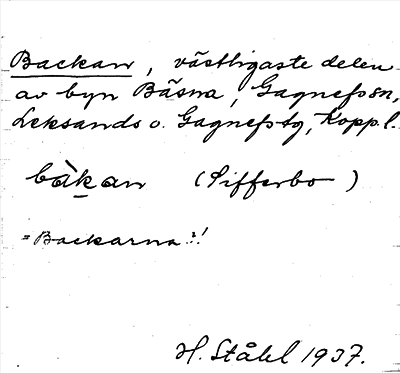 Backan, västligaste delen
av byn Bäsna, Gagnefs sn,
Leksands o. Gagnefs tg, Kopp.l.
bàkan (Sifferbo)
= Backarna?!
H. Ståhl 1937.